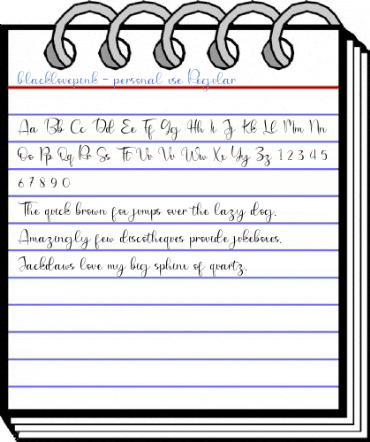 blacklovepink - personal use Regular
Aa Bb Cc Dd Ee Ff Gg Hh Ii Jj Kk Ll Mm Nn
Oo Pp Qq Rr Ss Tt Uu Vv Ww Xx Yy Zz 1 2 3 4 5
6 7 8 9 0
The quick brown fox jumps over the lazy dog.
Amazingly few discotheques provide jukeboxes.
Jackdaws love my big sphinx of quartz.